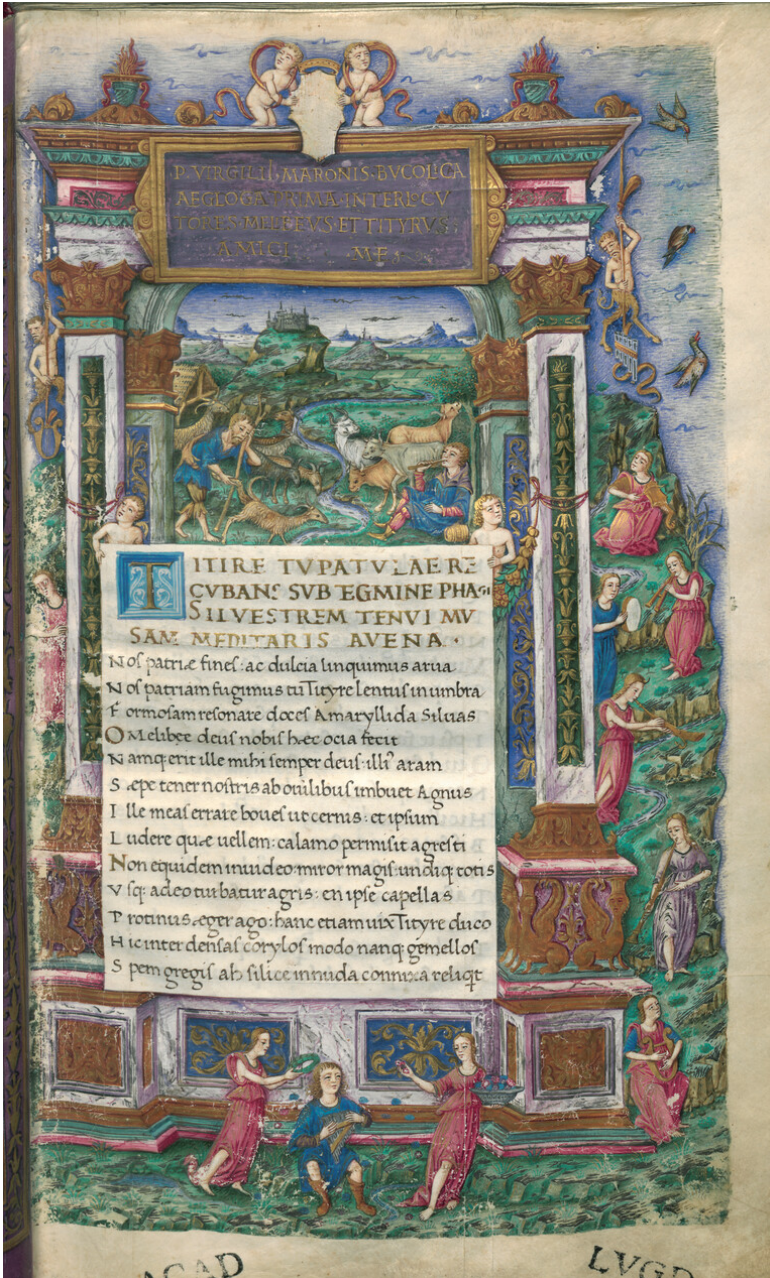 P. VIRGILII MARONIS BVCOLICA
AEGLOGA PRIMA INTERLOCV
TORES MELIBEVS ET TITYRVS
AMICI ME
TITIRE TV PATVLAE RE
CVBANS SVB TEGMINE PHAGI
SILVESTREM TENVI MV
SAM MEDITARIS AVENA.
Nos patriæ fines: ac dulcia linquimus arua
Nos patriam fugimus tu Tityre lentus in umbra
Formosam resonare doces Amaryllida Siluas
O Melibœe deus nobis hæc ocia fecit
Namq; erit ille mihi semper deus: illiꝰ aram
Sæpe tener nostris ab ouilibus imbuet Agnus
Ille meas errare boues ut cernis: et ipsum
Ludere quæ uellem: calamo permisit agresti
Non equidem inuideo: miror magis: undiq; totis
Vsq; adeo turbatur agris: en ipse capellas
Protinus æger ago: hanc etiam uix Tityre duco
Hic inter densas corylos modo nanq; gemellos
Spem gregis ah silice in nuda connixa reliqt
ACAD LVGD